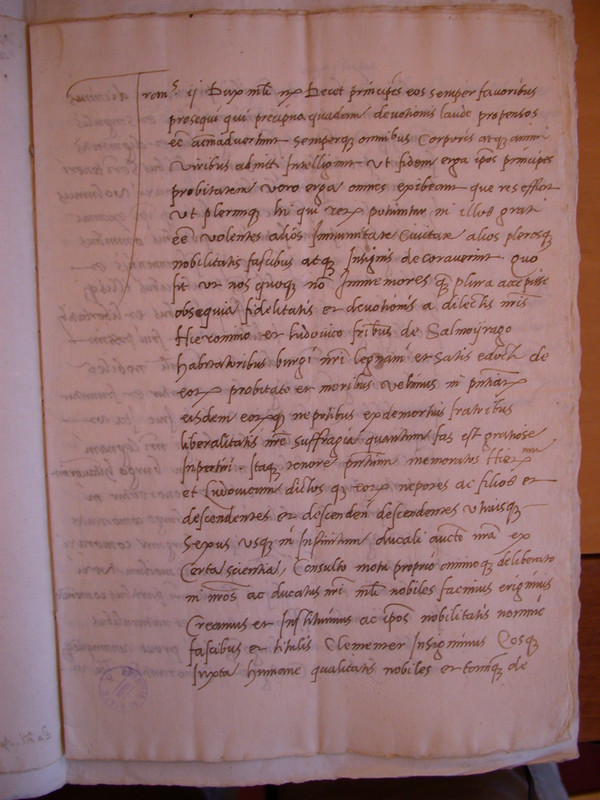 Franc.s ij Dux mli &c Decet principes eos semper favoribus
prosequi qui precipua quadam devotionis laude propensos
ee animadvertunt semperq omnibus Corporis atq animi
viribus admitti Intelligunt ut fidem erga ipos principes
probitatem vero erga omnes exibeant que res
ut plerumq hi qui potiuntur in illos grati
ee volentes alios Immunitate Civitate alios plerosq
nobilitatis fascibus atq Insignijs decoraverint quo
fit ut nos quoq no Immemores q plura accepisse
obsequia fidelitatis et devotionis a dilectis nris
Hieronimo et Ludovico fribus de Salmoyrago
habitatoribus burgi nri legnani et satis edocti de
eor probitate et moribus velimus in pntiar
eisdem eorq nepotibus ex demortuis fratribus
liberalitatis nre suffragia quantum fas est gratiose
Impertiri. Itaq tenore pntium memoratos Hier.mum
et Ludovicum dictos q eor nepotes ac filios et
descendentes et descenden descendentes utriusq
Sexus usq in Infinitum ducali aucte nra ex
Certa scientia, Consulto motu proprio ominoq deliberato
in nros ac ducatus nri mli nobiles facimus erigimus
Creamus et Instituimus ac ipos nobilitatis nomine
fascibus et titulis Clementer Insignimus Eosq
Iuxta humane qualitatis nobiles et tortuq de